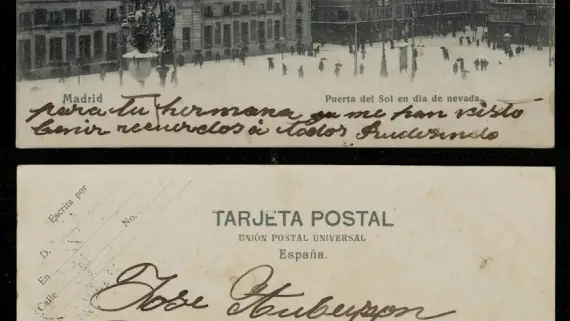 Madrid
Puerta del Sol en dia de nevada.
para tu hermana ya me han visto
benir recuerdos á todos Rudesindo
Escrita por
D.
En
Calle
No.
TARJETA POSTAL
UNIÓN POSTAL UNIVERSAL
España.
Jose